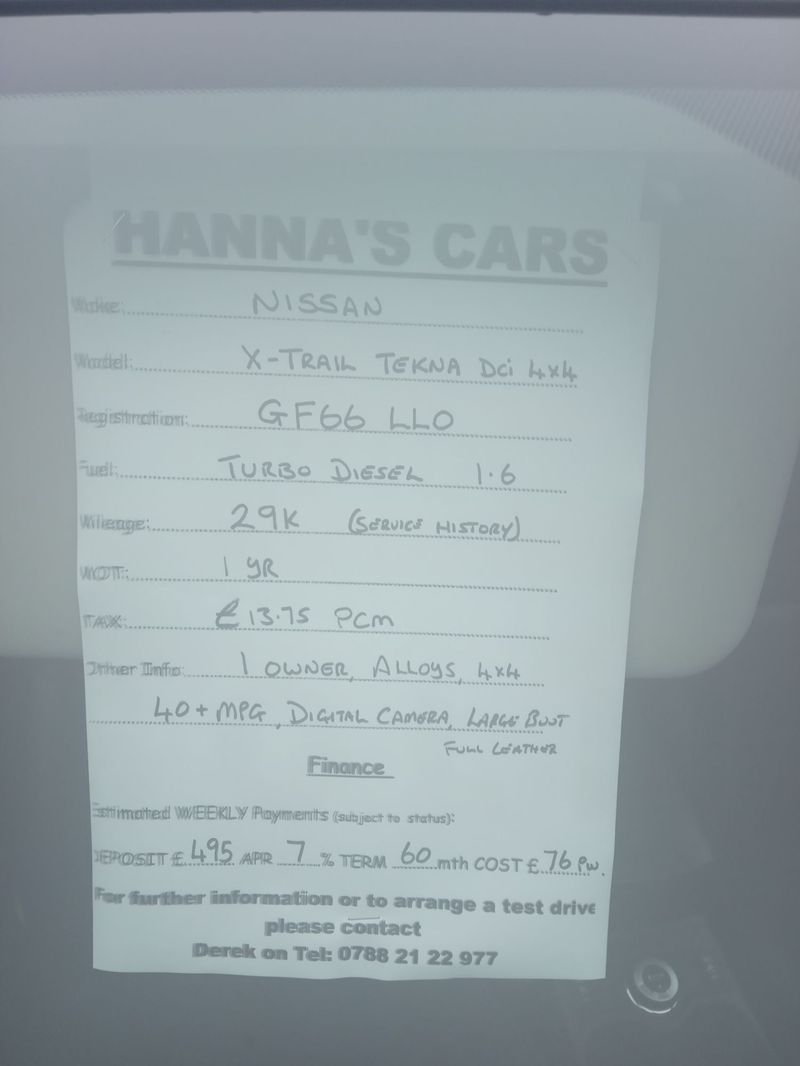 HANNA'S CARS
Make: NISSAN
Model: X-TRAIL TEKNA Dci 4x4
Registration: GF66 LLO
Fuel: TURBO DIESEL 1.6
Mileage: 29K (SERVICE HISTORY)
MOT: 1 YR
TAX: £13.75 PCM
Other Info: 1 OWNER, ALLOYS, 4x4
40+ MPG, DIGITAL CAMERA, LARGE BOOT
FULL LEATHER
Finance
Estimated WEEKLY Payments (subject to status):
DEPOSIT £ 495 APR 7 % TERM 60 mth COST £ 76 PW.
For further information or to arrange a test drive
please contact
Derek on Tel: 0788 21 22 977